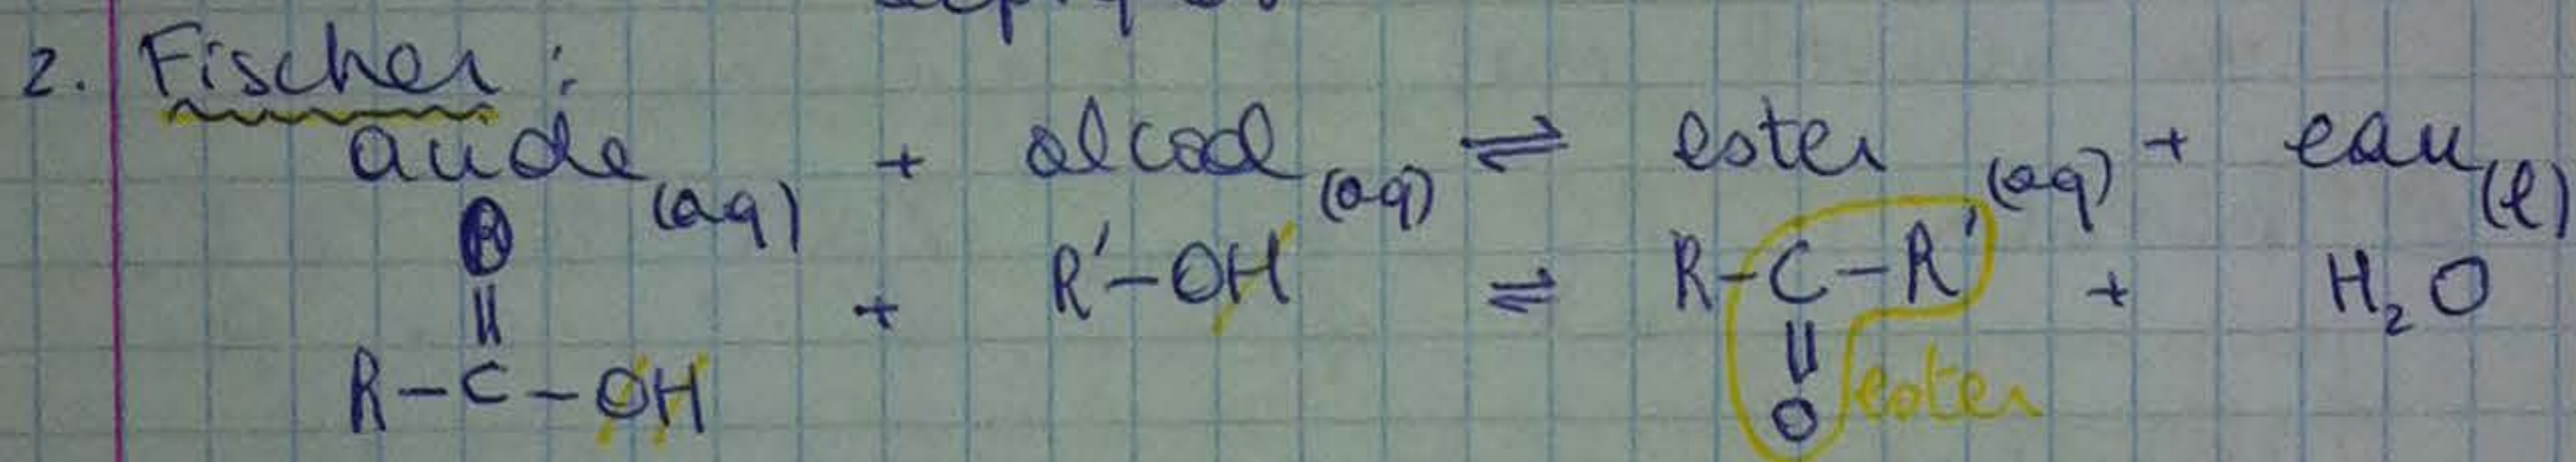 2. Fischer :
acide (aq) + alcool (aq) ⇌ ester (aq) + eau (l)
O
||
R-C-OH + R'-OH ⇌ R-C-R' + H₂O
||
O ester